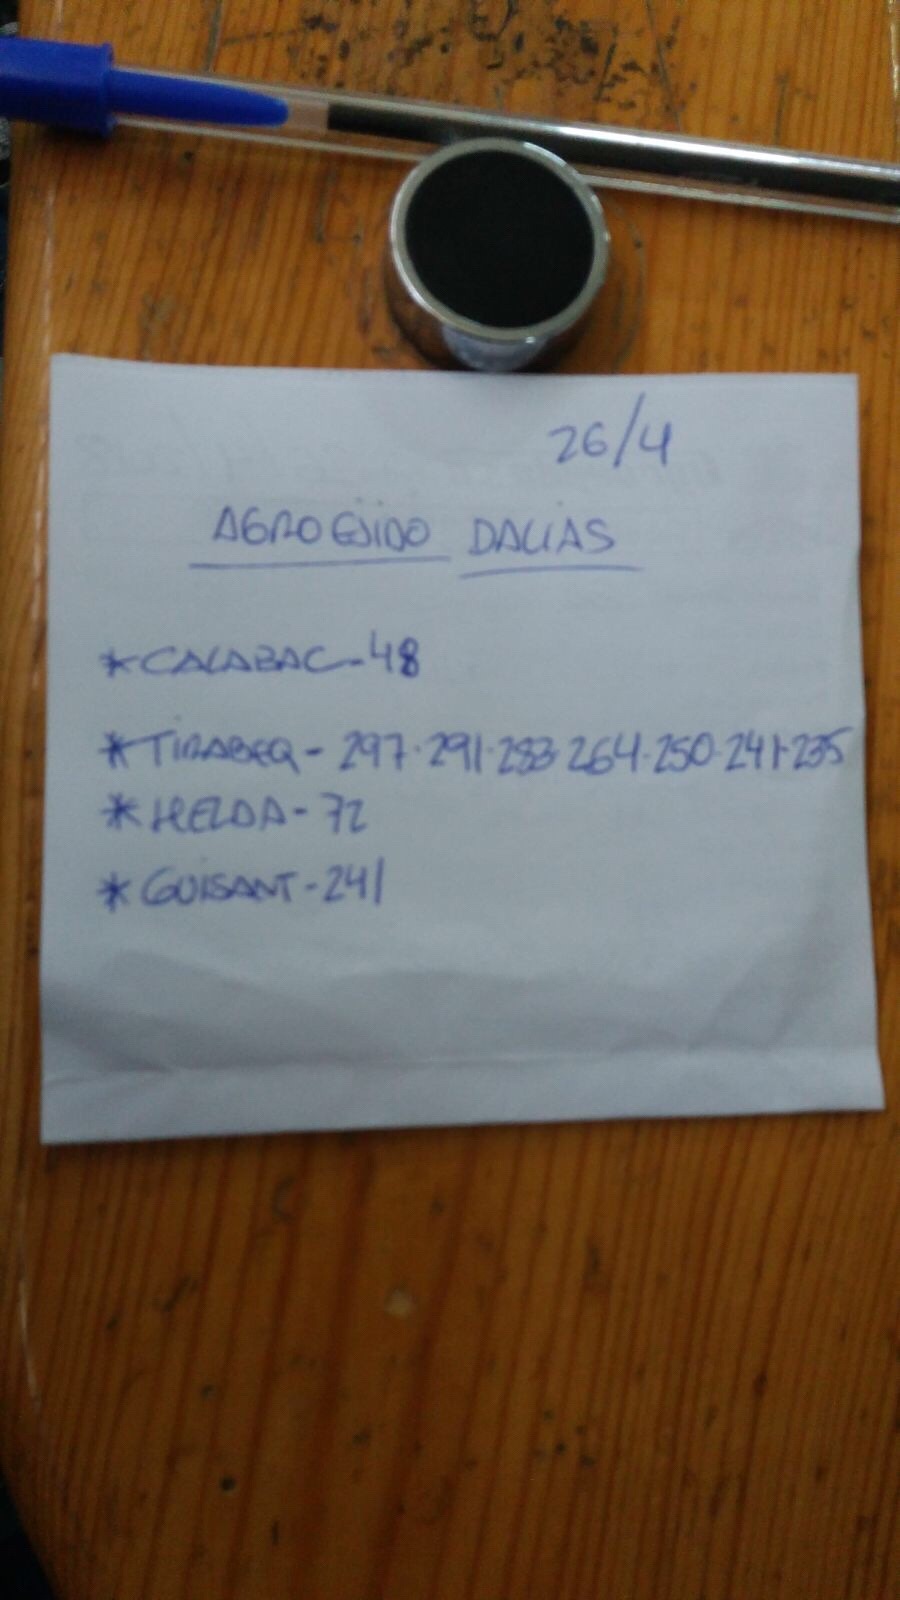 26/4
AGROEJIDO DALIAS
*CALABAC-48
*TIRABEQ- 297-291-283-264-250-241-235
*HELDA-72
*GUISANT-241